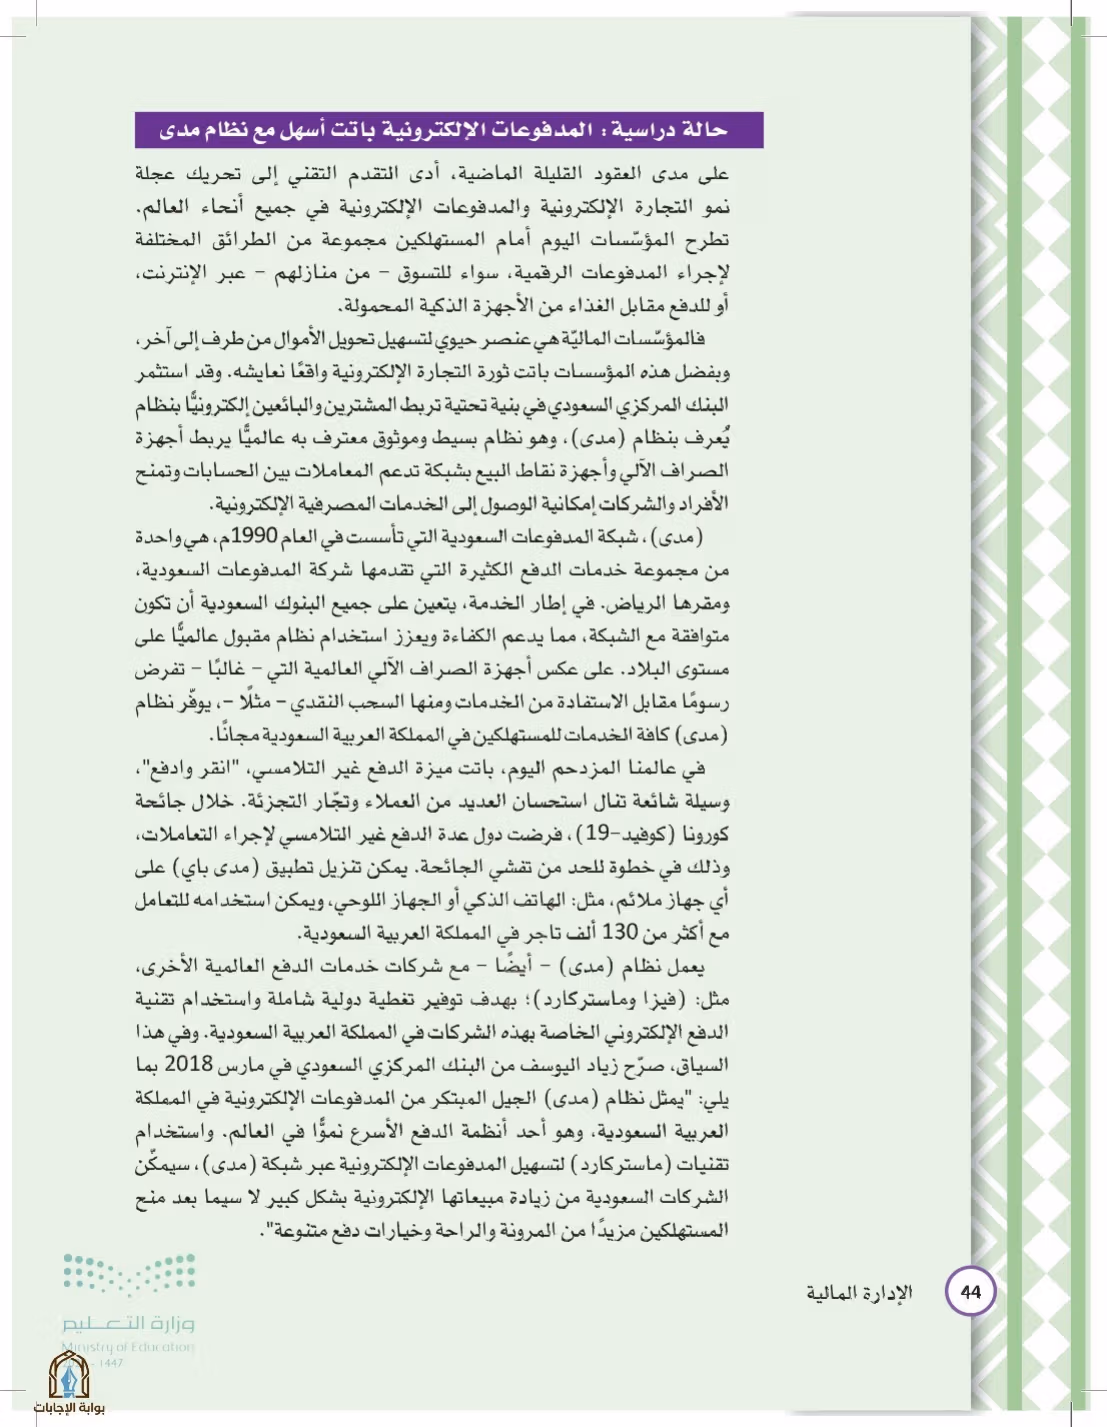 حالة دراسية : المدفوعات الإلكترونية باتت أسهل مع نظام مدى
على مدى العقود القليلة الماضية، أدى التقدم التقني إلى تحريك عجلة
نمو التجارة الإلكترونية والمدفوعات الإلكترونية في جميع أنحاء العالم.
تطرح المؤسّسات اليوم أمام المستهلكين مجموعة من الطرائق المختلفة
لإجراء المدفوعات الرقمية، سواء للتسوق – من منازلهم – عبر الإنترنت،
أو للدفع مقابل الغذاء من الأجهزة الذكية المحمولة.
فالمؤسّسات الماليّة هي عنصر حيوي لتسهيل تحويل الأموال من طرف إلى آخر،
وبفضل هذه المؤسسات باتت ثورة التجارة الإلكترونية واقعًا نعايشه. وقد استثمر
البنك المركزي السعودي في بنية تحتية تربط المشترين والبائعين إلكترونيًّا بنظام
يُعرف بنظام (مدى)، وهو نظام بسيط وموثوق معترف به عالميًّا يربط أجهزة
الصراف الآلي وأجهزة نقاط البيع بشبكة تدعم المعاملات بين الحسابات وتمنح
الأفراد والشركات إمكانية الوصول إلى الخدمات المصرفية الإلكترونية.
(مدى)، شبكة المدفوعات السعودية التي تأسست في العام 1990م، هي واحدة
من مجموعة خدمات الدفع الكثيرة التي تقدمها شركة المدفوعات السعودية،
ومقرها الرياض. في إطار الخدمة، يتعين على جميع البنوك السعودية أن تكون
متوافقة مع الشبكة، مما يدعم الكفاءة ويعزز استخدام نظام مقبول عالميًّا على
مستوى البلاد. على عكس أجهزة الصراف الآلي العالمية التي – غالبًا – تفرض
رسومًا مقابل الاستفادة من الخدمات ومنها السحب النقدي – مثلًا –، يوفّر نظام
(مدى) كافة الخدمات للمستهلكين في المملكة العربية السعودية مجانًا.
في عالمنا المزدحم اليوم، باتت ميزة الدفع غير التلامسي، "انقر وادفع"،
وسيلة شائعة تنال استحسان العديد من العملاء وتجّار التجزئة. خلال جائحة
كورونا (كوفيد–19)، فرضت دول عدة الدفع غير التلامسي لإجراء التعاملات،
وذلك في خطوة للحد من تفشي الجائحة. يمكن تنزيل تطبيق (مدى باي) على
أي جهاز ملائم، مثل: الهاتف الذكي أو الجهاز اللوحي، ويمكن استخدامه للتعامل
مع أكثر من 130 ألف تاجر في المملكة العربية السعودية.
يعمل نظام (مدى) – أيضًا – مع شركات خدمات الدفع العالمية الأخرى،
مثل: (فيزا وماستركارد)؛ بهدف توفير تغطية دولية شاملة واستخدام تقنية
الدفع الإلكتروني الخاصة بهذه الشركات في المملكة العربية السعودية. وفي هذا
السياق، صرّح زياد اليوسف من البنك المركزي السعودي في مارس 2018 بما
يلي: "يمثل نظام (مدى) الجيل المبتكر من المدفوعات الإلكترونية في المملكة
العربية السعودية، وهو أحد أنظمة الدفع الأسرع نموًّا في العالم. واستخدام
تقنيات (ماستركارد) لتسهيل المدفوعات الإلكترونية عبر شبكة (مدى)، سيمكّن
الشركات السعودية من زيادة مبيعاتها الإلكترونية بشكل كبير لا سيما بعد منح
المستهلكين مزيدًا من المرونة والراحة وخيارات دفع متنوعة".
44
الإدارة المالية
وزارة التعليم
Ministry of Education
- 1447
بوابة الإجابات